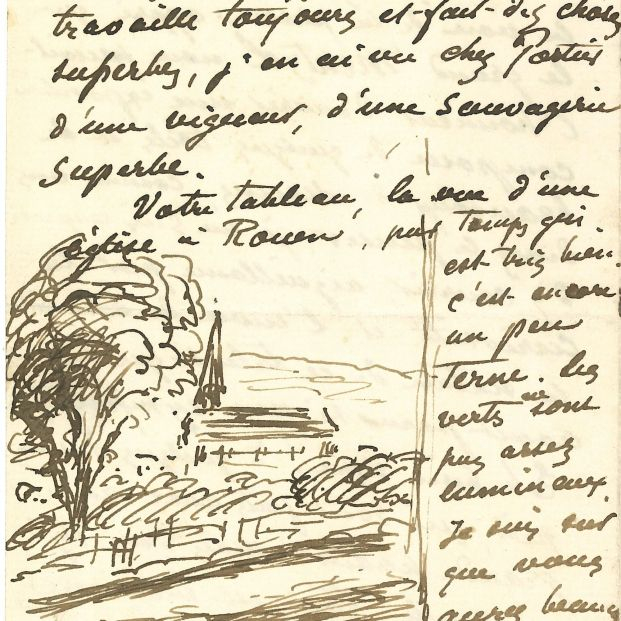 travaille toujours et fait des choses
superbes, j'en ai vu chez Portier
d'une vigueur, d'une sauvagerie
superbe.
Votre tableau, la vue d'une
église à Rouen, par temps gris
est très bien.
c'est encore
un peu
terne. les
verts ne sont
pas assez
lumineux.
Je suis sur
que vous
aurez beaucou